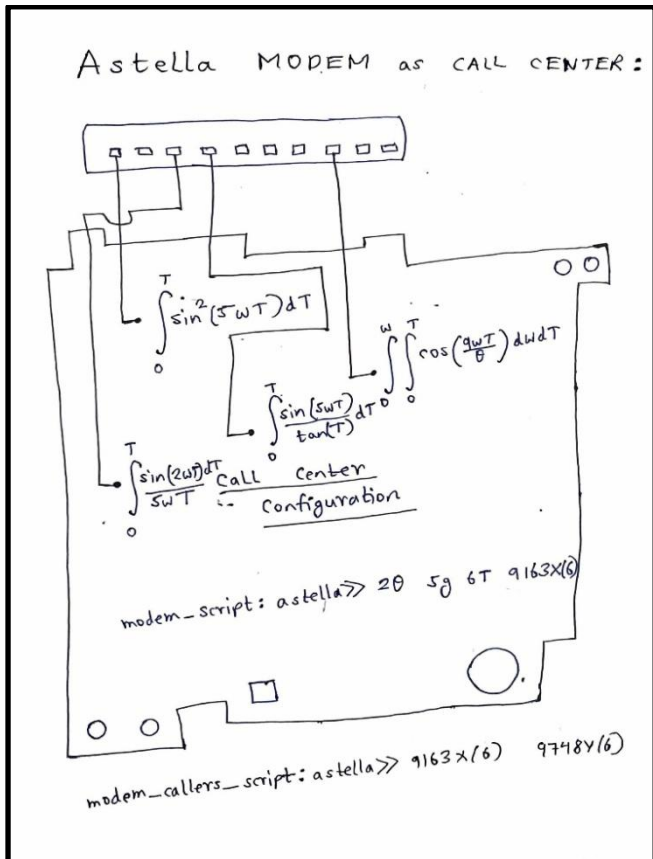 Astella MODEM as CALL CENTER:
∫₀ᵀ sin²(5wT) dT
∫₀ʷ ∫₀ᵀ cos(9wT/θ) dwdT
∫₀ᵀ sin(5wT)/tan(T) dT
∫₀ᵀ sin(2wT)dT/5wT
Call Center
Configuration
modem_script: astella>> 2θ 5g 6T 9163X(6)
modem_callers_script: astella>> 9163X(6) 9748Y(6)